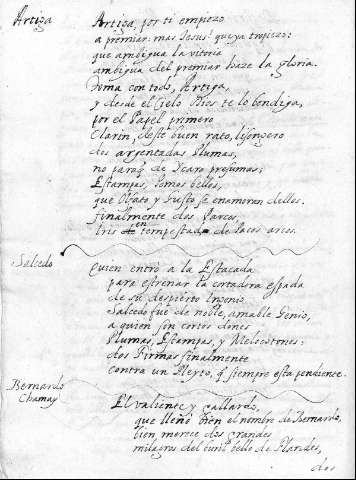 Artiga
Artiga, por ti empiezo
a premiar: mas Jesus! que ya tropiezo:
que ambigua la vitoria
ambigua del premiar haze la gloria.
Toma con todo, Artiga,
y desde el Cielo Dios te lo bendiga,
por el Papel primero
Clarin, deste buen rato, lisongero
dos argentadas Plumas,
no para q̃ de Icaro presumas;
Estampas, Pomos bellos,
que Olfato y Gusto se enamoren dellos.
finalmente dos Parcos
Iris en tempestad de lacos arcos.
Salcedo
Quien entrò a la Estacada
para estrenar la cortadora espada
de su despierto Ingenio
Salcedo fue de noble, amable Genio,
a quien sin cortos dones
Plumas, Estampas, y Melocotones:
dos Firmas finalmente
contra un Pleyto, q̃ siempre esta pendiente.
Bernardo
Chamay
El valiente y gallardo,
que lleñò bien el nombre de Bernardo,
bien merece dos grandes
milagros del buril bello de Flandes,
dos